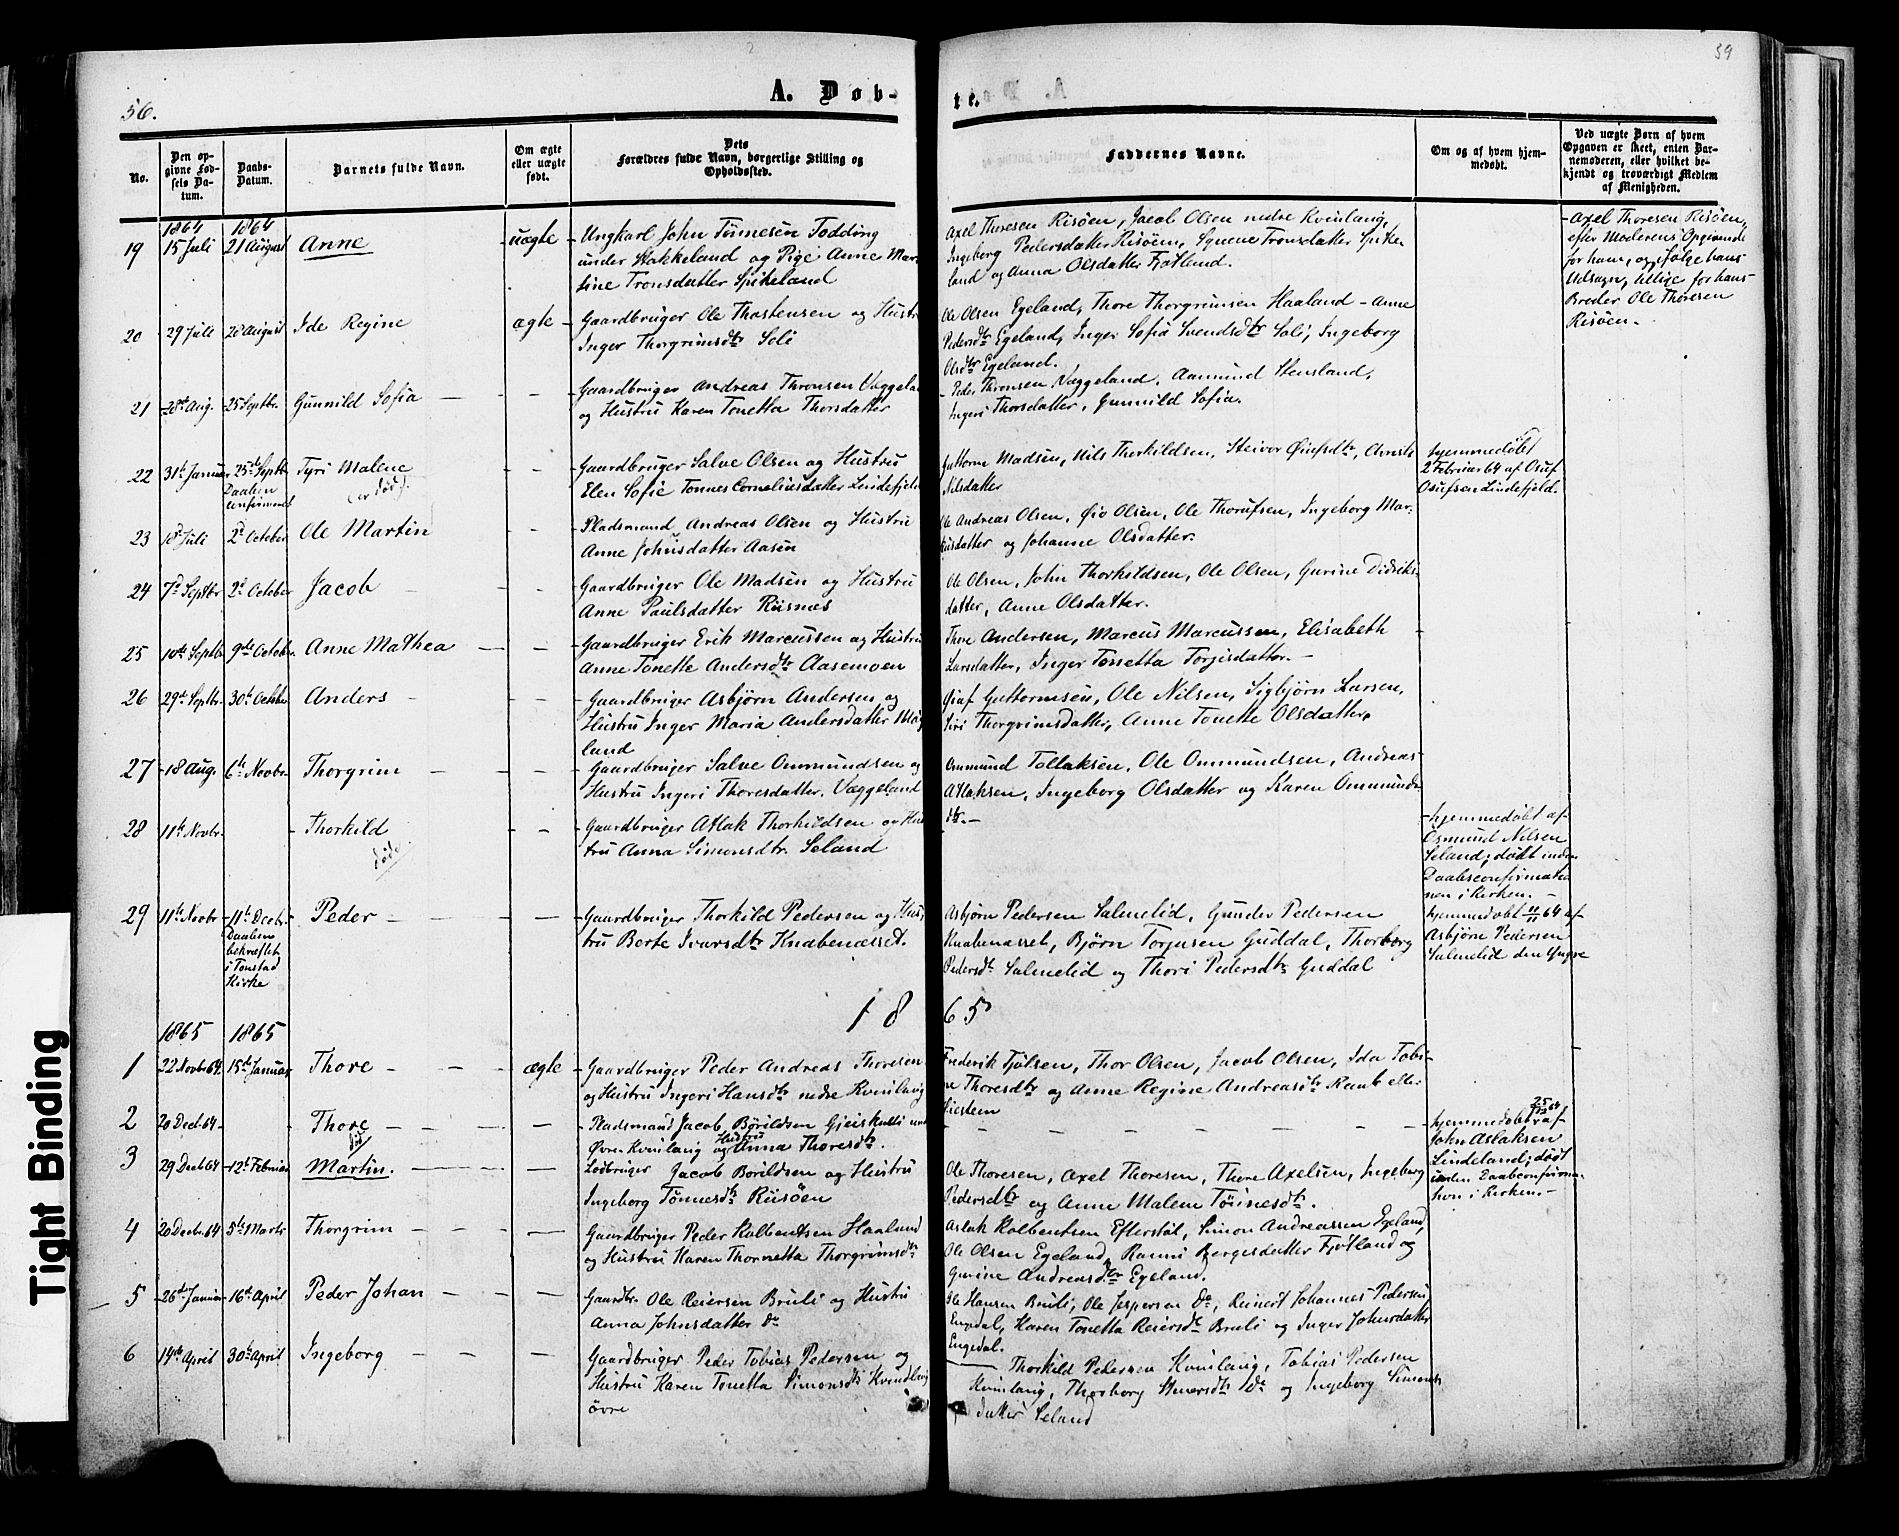 56.
A. Døb-
te.
59
No.
Den op-
givne Fød-
sels Da-
tum.
Daabs-
Datum.
Barnets fulde Navn.
Om ægte
eller uægte
født.
Dets
Forældres fulde Navn, borgerlige Stilling og
Opholdssted.
Faddernes Navne.
Om og af hvem hjem-
medøbt.
Ved uægte Børn af hvem
Opgaven er skeet, enten Bar-
nemoderen, eller hvilket be-
kjendt og troværdigt Medlem
af Menigheden.
1864 1864
19 15 Juli 21 August Anne uægte
Ungkarl John Tønnesen Tødding
under Stakkeland og Pige Anne Mar-
tine Tronsdatter Spikeland
Axel Thoresen Risøen, Jacob Olsen nedre Kvinlaug,
Ingeborg Pedersdatter Risøen, Syneve Tronsdatter Spike-
land og Anna Olsdatter Fjotland.
Axel Thoresen Risøen,
efter Moderens Opgivende
for ham, og ifølge hans
Udsagn, tillige for hans
Broder Ole Thoresen
Risøen.
20 29 Juli 28 August Ide Regine ægte
Gaardbruger Ole Thostensen og Hustru
Inger Thorgrimsdtr Soli
Ole Olsen Egeland, Thore Thorgrimsen Haaland - Anne
Pedersdtr Egeland, Inger Sofia Svendsdtr Soli, Ingeborg
Olsdtr Egeland.
21 28de Aug. 25 Septbr. Gunnild Sofia — —
Gaardbruger Andreas Thronsen Væggeland
og Hustru Karen Tonetta Thorsdatter
Peder Thronsen Væggeland, Aamund Stensland,
Ingeri Thorsdatter, Gunnild Sofia.
22 31te Januar 25de Septbr Tyri Malene - -
Daaben
confirmeret
(er død).
Gaardbruger Salve Olsen og Hustru
Elen Sofie Tonnes Corneliusdatter Lindefjeld
Guttorm Madsen, Nils Thorkildsen, Steivor Øiufsdtr,
Nilsdatter
hjemmedøbt
2 Februar 64 af Osuf
Osufsen Lindefjeld.
23 10d Juli 2d October Ole Martin
Pladsmand Andreas Olsen og Hustru
Anne Johnsdatter Aasen
Ole Andreas Olsen, Øiv Olsen, Ole Thorufsen, Ingeborg Mar-
kusdatter og Johanne Olsdatter.
24 7d Septbr 2d October Jacob - -
Gaardbruger Ole Madsen og Hustru
Anne Paulsdatter Risnes
Ole Olsen, John Thorkildsen, Ole Olsen, Gurine Didriks-
datter, Anne Olsdatter.
25 10de Septbr 9nde October. Anne Mathea — —
Gaardbruger Erik Marcussen og Hustru
Anne Tonette Andersdtr Aasemoen
Thore Andersen, Marcus Marcussen, Elisabeth
Larsdatter, Inger Tonetta Torgisdatter. —
26 29de Septbr. 30te October Anders - -
Gaardbruger Asbjørn Andersen og
Hustru Inger Maria Andersdatter
land
Øiuf Guttormsen, Ole Nilsen, Sigbjørn Larsen,
Siri Thorgrimsdatter, Anne Tonette Olsdatter.
27 18 Aug. 6te Novbr. Thorgrim — —
Gaardbruger Salve Ommundsen og
Hustru Ingeri Thoresdatter, Væggeland
Ommund Tollaksen, Ole Ommundsen, Andreas
Atlaksen, Ingeborg Olsdatter og Karen Ommunds-
dtr. —
28 11te Novbr. Thorkild
døde.
Gaardbruger Atlak Thorkildsen og Hus-
tru Anna Simonsdtr. Seland
hjemmedøbt af
Osmund Nilsen
Seland; dødt inden
Daabsconfirmatio-
nen i Kirken. —
29 11te Novbr 11te Decbr Peder — — —
Daaben
bekræftet
i Tonstad
Kirke
Gaardbruger Thorkild Pedersen og Hus-
tru Berte Ivarsdtr Knabenæsset.
Asbjørn Pedersen Salmelid, Gunder Pedersen
Knabenæsset, Bjørn Torjusen Guddal, Thorborg
Pedersdtr Salmelid og Thori Pedersdtr Guddal
hjemmedøbt 11/11 64 af
Asbjørn Pedersen
Salmelid den Yngre
1865
1865 1865
1 22 Novbr 64. 15de Januar Thore — — ægte
Gaardbruger Peder Andreas Thoresen
og Hustru Ingeri Hansdtr nedre Kvinlaug
Frederik Fjølsen, Thor Olsen, Jacob Olsen, Ida Tobi-
ne Thoresdtr og Anne Regine Andreasdtr
2 20 Decb. 64 - Thore — —
død
Pladsmand Jacob Børildsen Gjeiskelli under
Øvre Kvinlaug og Hustru Anna Thoresdtr.
hjemmedøbt 25/12 64 af
John Aslaksen
Lindeland; dødt
inden Daabsconfirma-
tion i Kirken. —
3 29 Decb 64 12te Februar Martin.
Lødbruger Jacob Borildsen og Hustru
Ingeborg Tønnesdtr Risøen
Ole Thoresen, Axel Thoresen, Thore Axelsen, Ingeborg
Pedersdtr og Anne Malene Tønnesdtr.
4 20 Decb. 64 5te Marts Thorgrim — — —
Gaardbruger Peder Kolbentsen Haaland
og Hustru Karen Thonnetta Thorgrimsdtr
Aslak Kolbentsen Efterstøl, Simon Andreassen Egeland,
Ole Olsen Egeland, Ranni Bergesdatter Fjotland og
Gurine Andreasdtr Egeland.
5 26de Januar 16de April Peder Johan — — —
Gaardbr. Ole Reiersen Bruli og Hustru
Anna Johnsdatter do
Ole Hansen Bruli, Ole Jespersen do, Reinert Johannes Pedersen
Engedal, Karen Tonetta Reiersdtr Bruli og Inger Johnsdatter
Engedal.
6 14de April 30te April Ingeborg — — —
Gaardbruger Peder Tobias Pedersen og
Hustru Karen Tonetta Simonsdtr Kvindlaug
øvre
Thorkild Pedersen Kvinlaug, Tobias Pedersen
Kvinlaug, Thorborg do og Ingeborg Simons-
datter Seland
Tight Binding